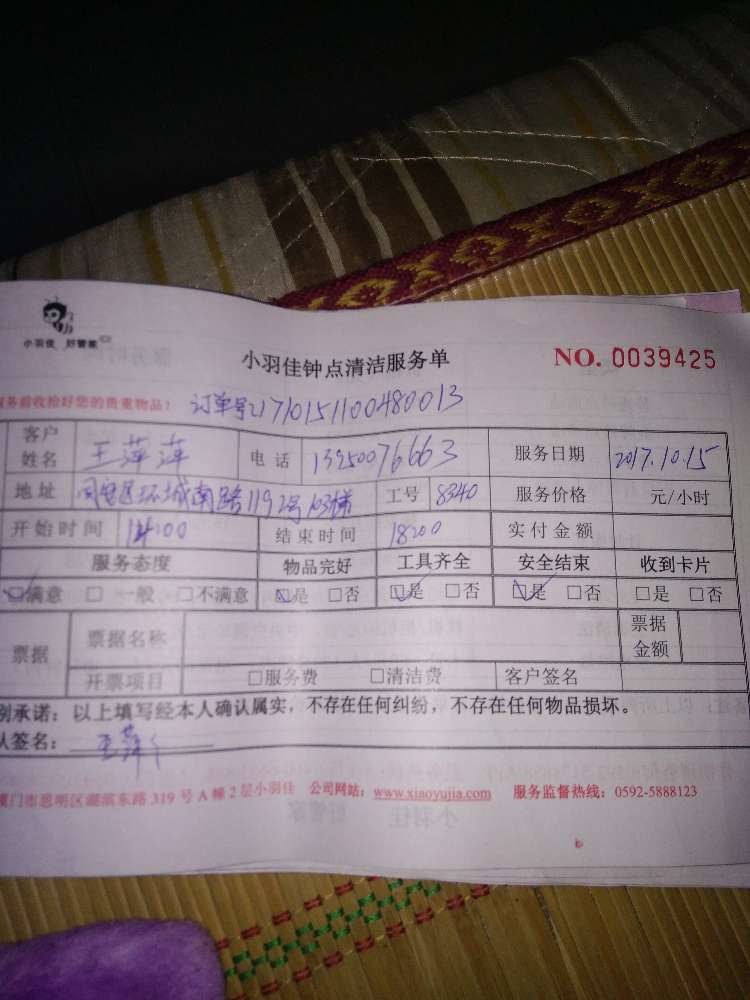 小羽佳 好管家
小羽佳钟点清洁服务单 NO. 0039425
务前收拾好您的贵重物品! 订单号21710151100480013
客户姓名 王萍萍 电话 13950076663 服务日期 2017.10.15
地址 同安区环城南路1192号103梯 工号 8340 服务价格 元/小时
开始时间 14:00 结束时间 18:00 实付金额
服务态度 物品完好 工具齐全 安全结束 收到卡片
☑满意 □一般 □不满意 ☑是 □否 ☑是 □否 ☑是 □否 □是 □否
票据 票据名称 票据金额
开票项目 □服务费 □清洁费 客户签名
别承诺:以上填写经本人确认属实,不存在任何纠纷,不存在任何物品损坏。
认签名: 王萍
厦门市思明区湖滨东路 319 号 A 幢 2 层小羽佳 公司网站:www.xiaoyujia.com 服务监督热线:0592-5888123